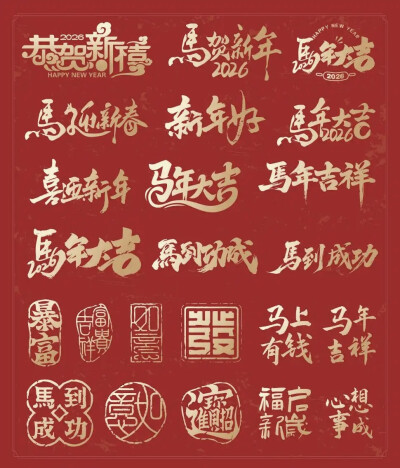 2026
恭贺新禧
HAPPY NEW YEAR
馬贺新年
2026
HAPPY NEW YEAR
馬年大吉
2026
馬迎新春
新年好
馬年大吉
2026
喜迎新年
马年大吉
馬年吉祥
馬年大吉
2026
馬到功成
馬到成功
暴富
吉祥
富貴
如意
發
马上有钱
马年吉祥
馬到成功
如意
招財進寶
福启新歲
心想事成